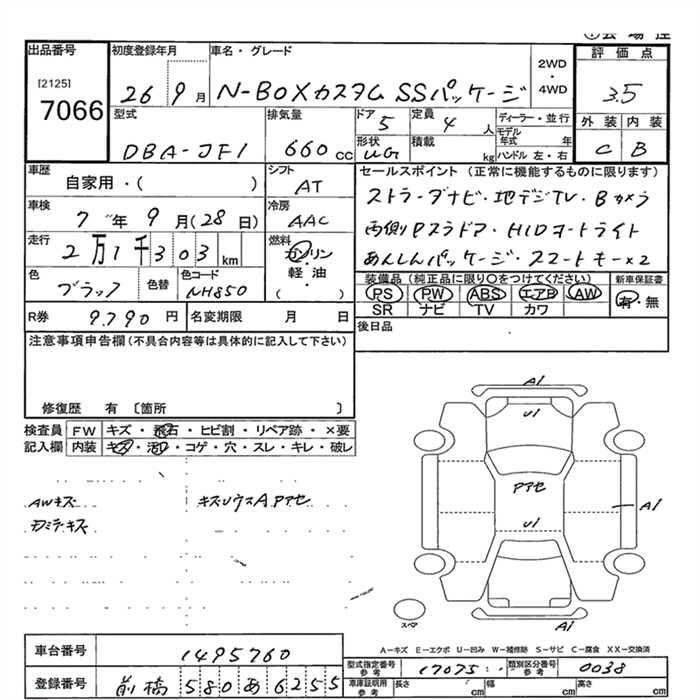 出品番号
[2125]
7066
初度登録年月
26 9月
車名・グレード
N-BOXカスタム SSパッケージ
2WD
・
4WD
評価点
3.5
型式
DBA-JF1
排気量
660 cc
ドア
5
定員
4 人
形状
UG
積載
kg
ディーラー・並行
モデル
年式 年
ハンドル 左・右
外装
C
内装
B
車歴
自家用・( )
シフト
AT
車検
7年9月(28日)
冷房
AAC
走行
2万1千303km
燃料
ガソリン
軽・油
( )
色
ブラック
色替
色コード
NH850
R券 9,790 円
名変期限 月 日
セールスポイント (正常に機能するものに限ります)
ストラーダナビ・地デジTV・Bカメラ
両側Pスラドア・HIDオートライト
あんしんパッケージ・スマートキー×2
装備品 (純正品に限り○をつけてください)
PS PW ABS エアB AW
SR ナビ TV カワ
新車保証書
有・無
後日品
注意事項申告欄 (不具合内容等は具体的に記入して下さい)
修復歴 有 〔箇所 〕
検査員
記入欄
FW キズ・飛石・ヒビ割・リペア跡・×要
内装 キズ・汚レ・コゲ・穴・スレ・キレ・破レ
AWキズ
キズリウスAアアセ
A1
U1
Pアセ
A1
U1
スペア
A1
A-キズ E-エクボ U-凹み W-補修跡 S-サビ C-腐食 XX-交換済
車台番号 1495760
登録番号 前橋 580 あ 6255
型式指定番号
参考
17075
類別区分番号
参考
0038
車庫証明用
参考
長さ cm
幅 cm
高さ cm